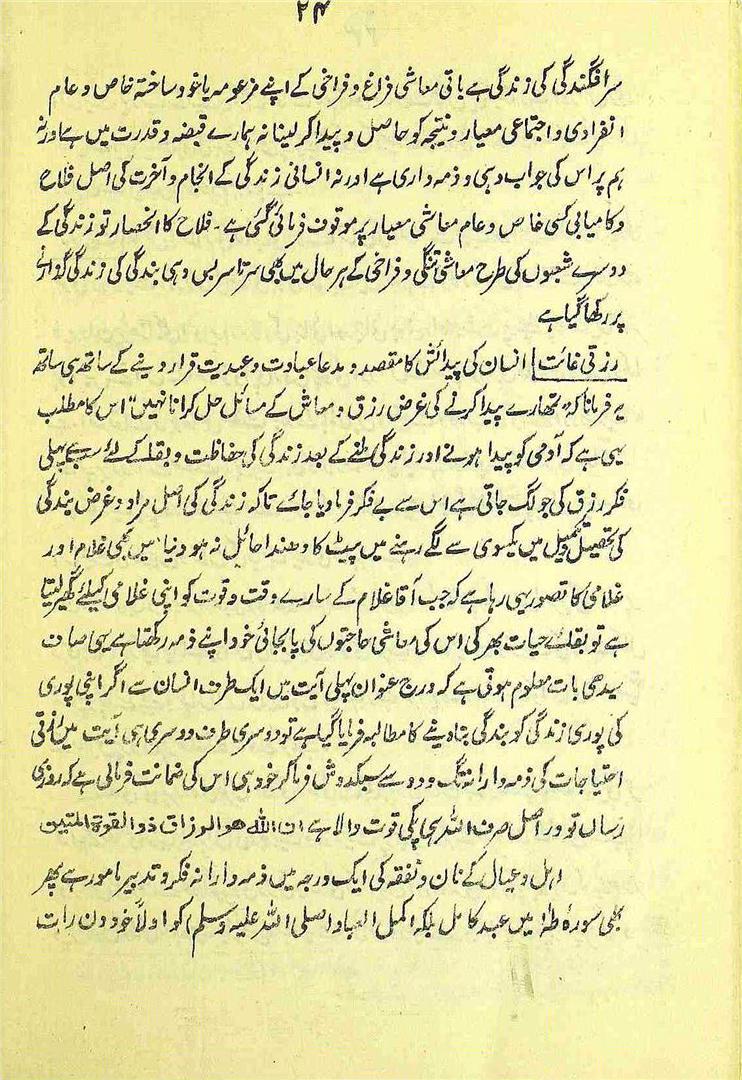 ۲۴
سرافگندگی کی زندگی ہے باقی معاشی فراغ و فراخی کے اپنے مزعومہ یا خود ساختہ خاص و عام
انفرادی و اجتماعی معیار و نتیجہ کو حاصل و پیدا کر لینا نہ ہمارے قبضہ و قدرت میں ہے اور نہ
ہم پر اس کی جواب دہی و ذمہ داری ہے اور نہ انسانی زندگی کے انجام و آخرت کی اصل فلاح
و کامیابی کسی خاص و عام معاشی معیار پر موقوف فرمائی گئی ہے۔ فلاح کا انحصار تو زندگی کے
دوسرے شعبوں کی طرح معاشی تنگی و فراخی کے ہر حال میں بھی سرتاسر بس وہی بندگی کی زندگی گذارنے
پر رکھا گیا ہے
رزقی غائت انسان کی پیدائش کا مقصد و مدعا عبادت و عبدیت قرار دینے کے ساتھ ہی ساتھ
یہ فرمانا کہ "تمھارے پیدا کرنے کی غرض رزق و معاش کے مسائل حل کرانا نہیں" اس کا مطلب
یہی ہے کہ آدمی کو پیدا ہونے اور زندگی ملنے کے بعد زندگی کی حفاظت و بقا کے لئے سب سے پہلی
فکر رزق کی جو لگ جاتی ہے اس سے بے فکر فرما دیا جائے تاکہ زندگی کی اصل مراد و غرض بندگی
کی تحصیل و تکمیل میں یکسوی سے لگے رہنے میں پیٹ کا دھندا حائل نہ ہو دنیا میں بھی غلام اور
غلامی کا تصور یہی رہا ہے کہ جب آقا غلام کے سارے وقت و قوت کو اپنی غلامی کیلئے گھیر لیتا
ہے تو بقائے حیات بھر کی اس کی معاشی حاجتوں کی پابجائی خود اپنے ذمہ رکھتا ہے یہی صاف
سیدھی بات معلوم ہوتی ہے کہ درج عنوان پہلی آیت میں ایک طرف انسان سے اگر اپنی پوری
کی پوری زندگی کو بندگی بنا دینے کا مطالبہ فرمایا گیا ہے تو دوسری طرف دوسری ہی آیت میں رزقی
احتیاجات کی ذمہ دارانہ تگ و دو سے سبکدوش فرما کر خود ہی اس کی ضمانت فرمالی ہے کہ روزی
رساں تو دراصل صرف اللہ ہی پکی قوت والا ہے ان اللہ ھو الرزاق ذو القوۃ المتین
اہل و عیال کے نان و نفقہ کی ایک درجہ میں ذمہ دارانہ فکر و تدبیر مامور ہے پھر
بھی سورۂ طہٰ میں عبد کامل بلکہ اکمل العباد (صلی اللہ علیہ وسلم) کو اولاً خود دن رات